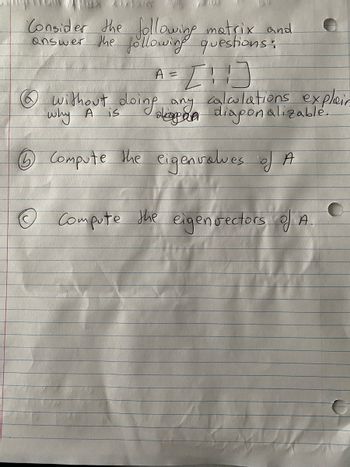 Consider the following matrix and
answer the following questions:
A = [1 1
1 1]
(a) without doing any calculations explain
why A is diagonalizable.
(b) Compute the eigenvalues of A
(c) Compute the eigenvectors of A.